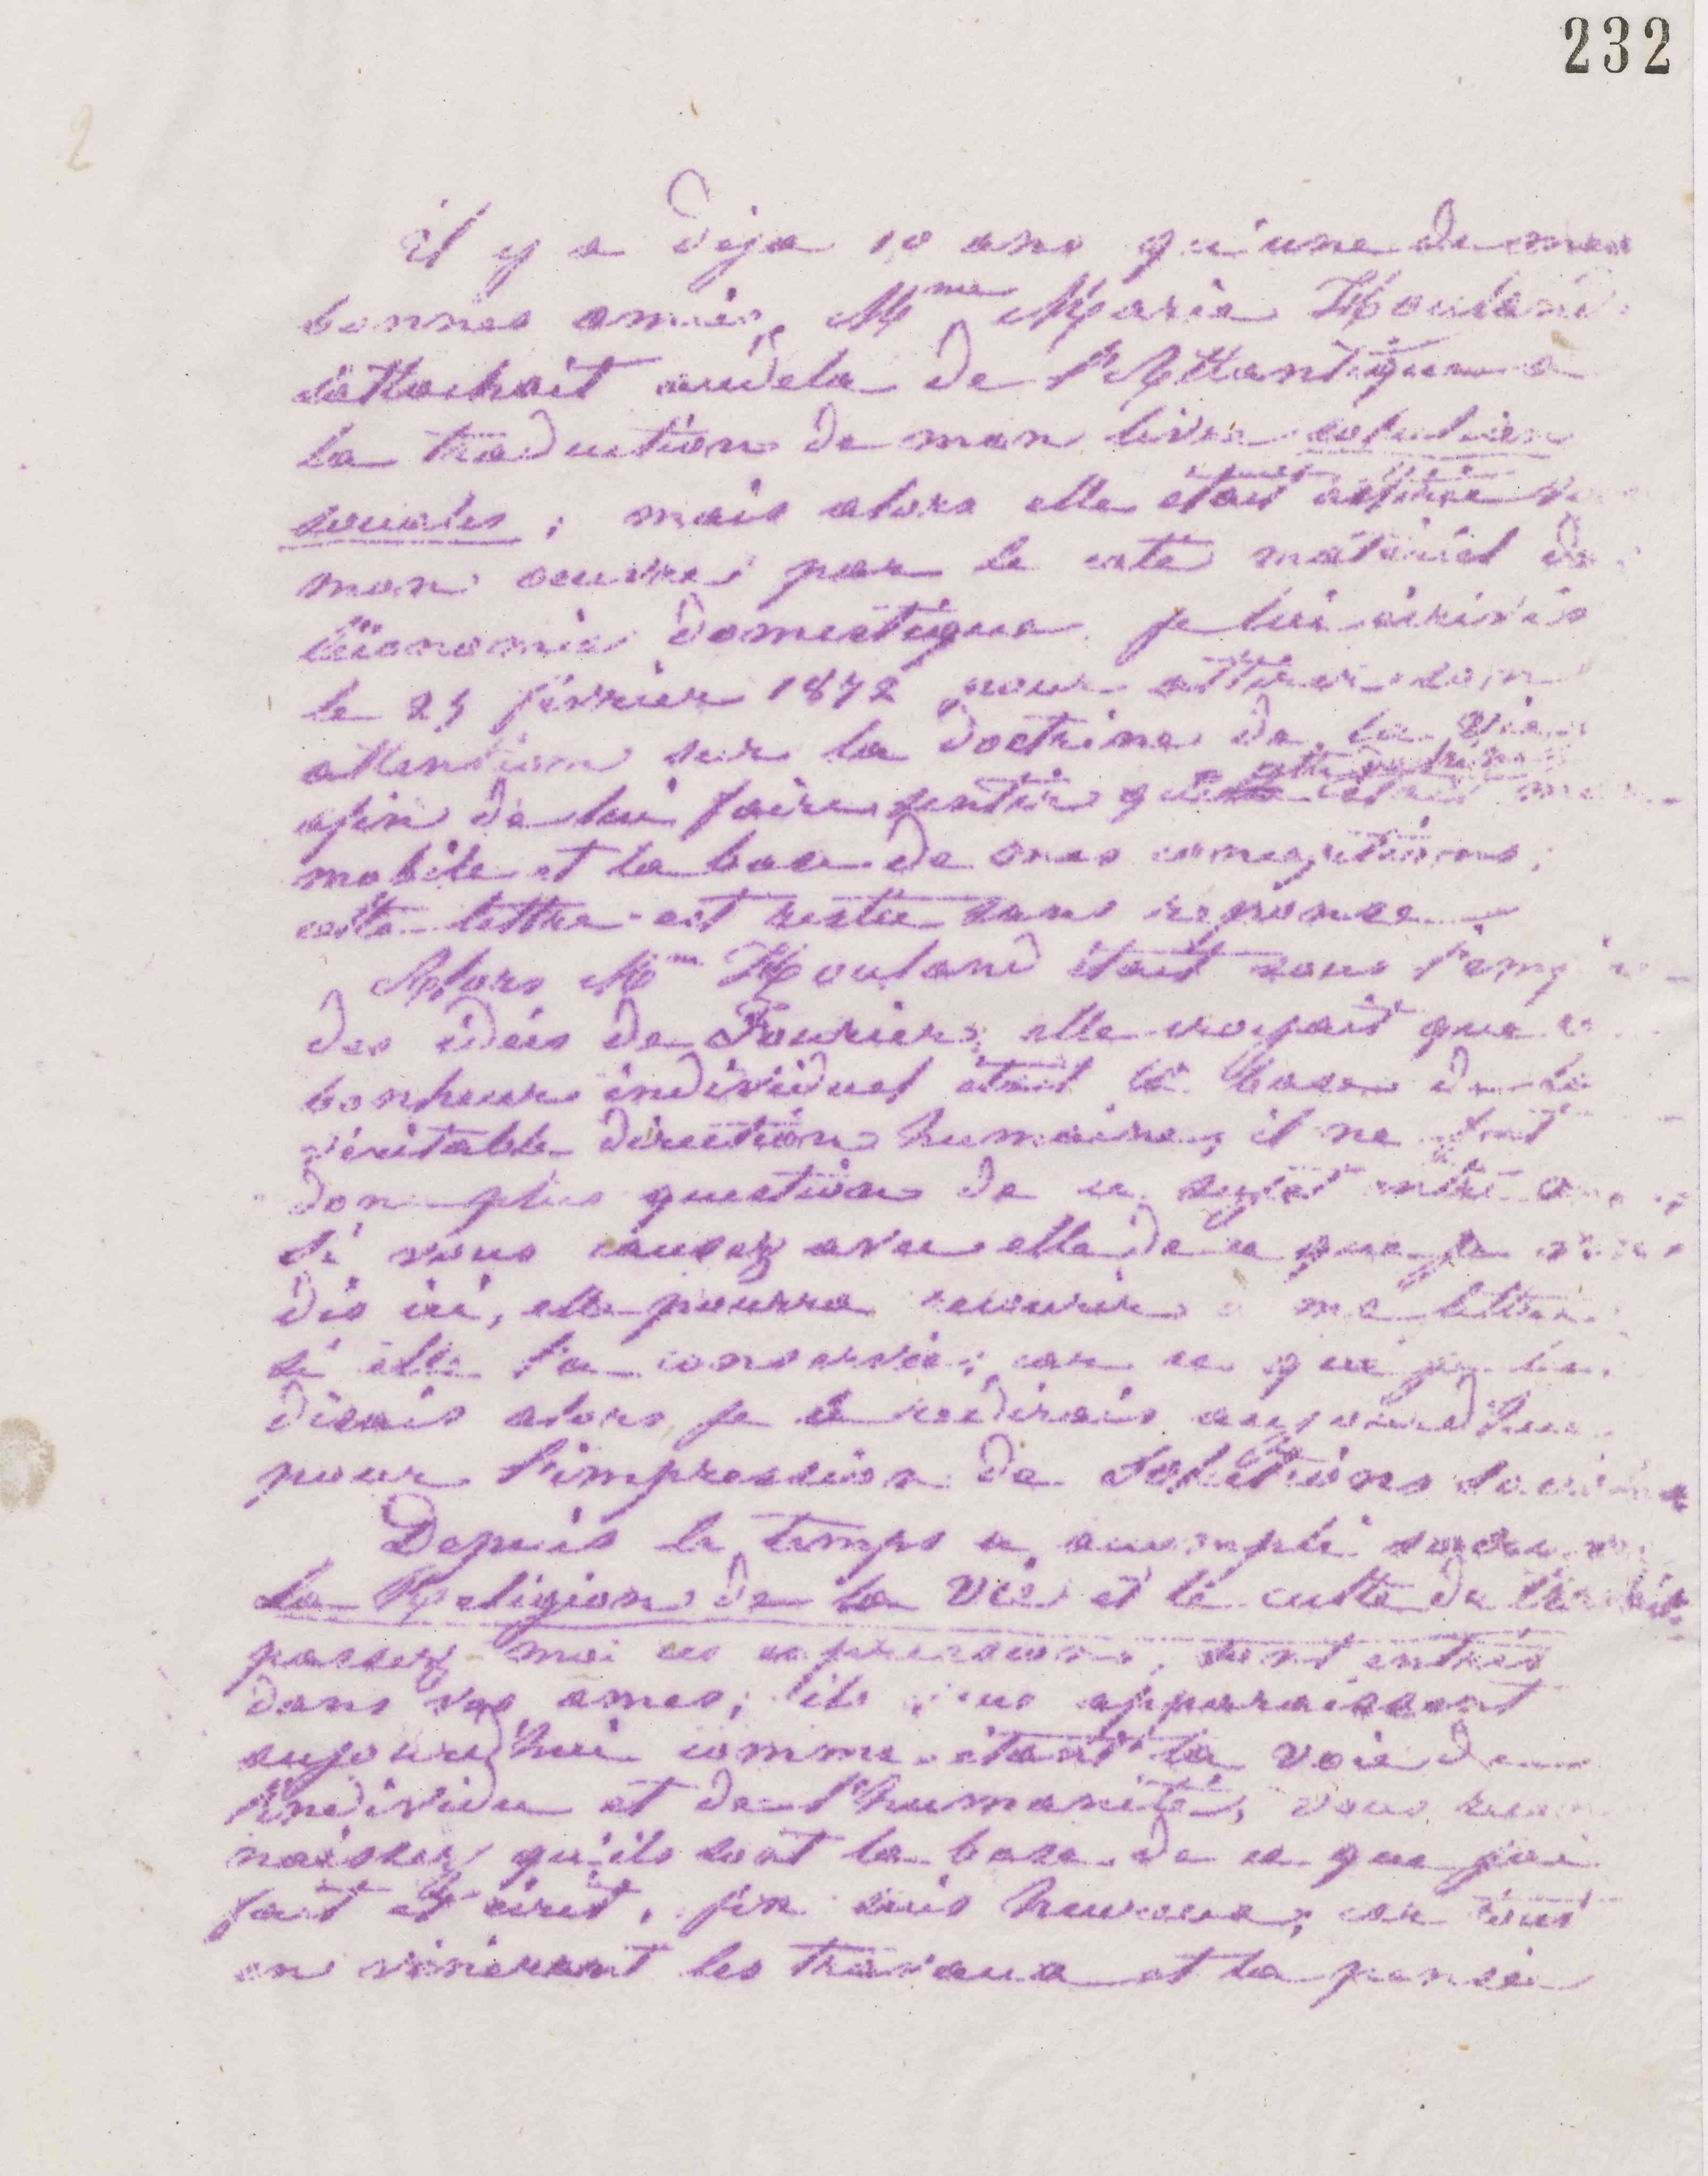 232
2
il y a déja 10 ans qu'une de mes
bonnes amies, Mme Marie Howland
s'attachait audela de l'Atlantique a
la traduction de mon livre solutions
sociales ; mais alors elle était attirée
mon oeuvre par le coté matériel de
l'économie domestique je lui écrivis
le 25 février 1872 pour attirer son
attention sur la doctrine de la vie
cette doctrine
afin de lui faire sentir que était mon
mobile et la base de mes conceptions ;
cette lettre est restée sans réponse
Alors Mme Howland était sous l'empire
des idées de Fourier, elle croyait que le
bonheur individuel était la base de la
véritable direction humaine, il ne fut
donc plus question de ce sujet entre
si vous causez avec elle de ce que je vous
dis ici, elle pourra recourir à ma lettre
si elle l'a conservée ; car ce que je lui
disais alors je le redirais aujourd'hui
pour l'impression de Solutions sociales
Depuis le temps a accompli
La Religion de la Vie et le culte du travail
passez moi ces expressions, sont entrés
dans vos ames ; ils vous apparaissent
aujourd'hui comme étant la voie de
l'individu et de l'humanité, vous recon
naissez qu'ils sont la base de ce que j'ai
fait et écrit, j'en suis heureux ; car tout
en vénérant les travaux et la pensée